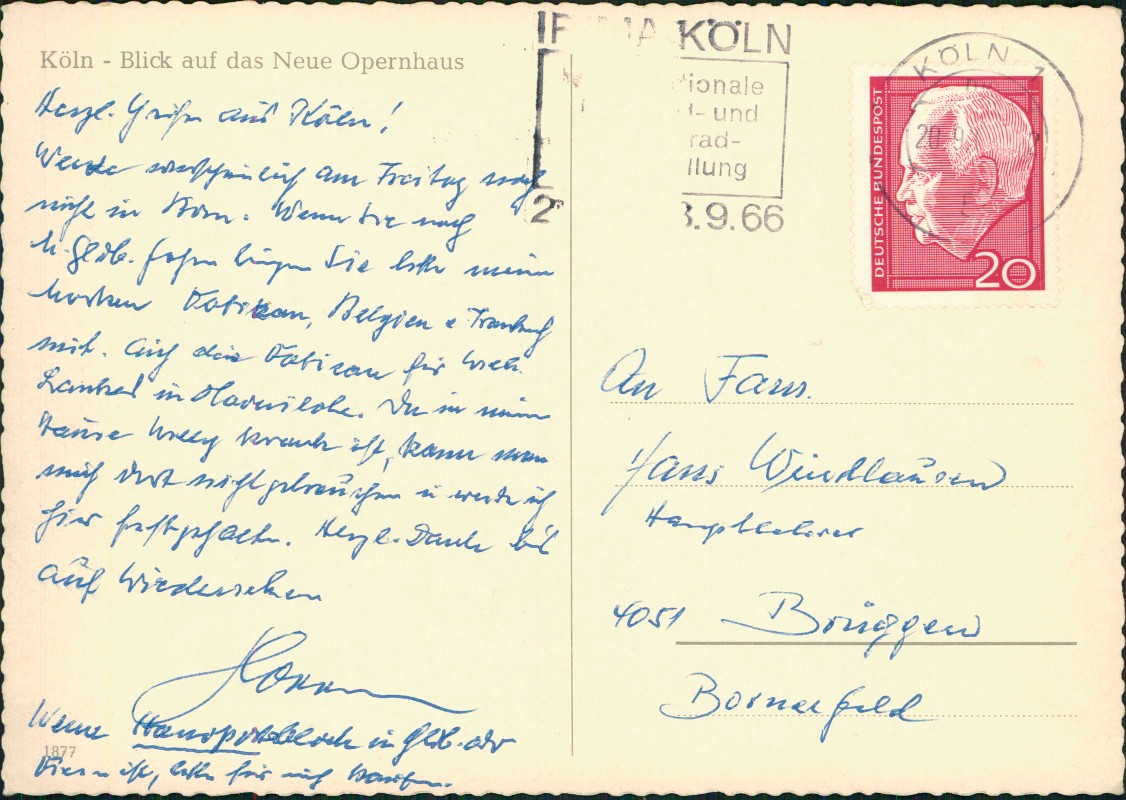 Köln - Blick auf das Neue Opernhaus
Herzl. Grüße aus Köln!
Werde wahrscheinlich am Freitag noch
nicht in Born. Wenn Sie nach
M.Gldb. fahren bringen Sie bitte meine
Marken Vatikan, Belgien u Frankreich
mit. Auch die Vatican für
in Da in meinem
Hause Willy krank ist, kann man
mich dort nicht gebrauchen u werde ich
hier festgehalten. Herzl. Dank bis
auf Wiedersehen
Wenn in Gldb. oder
ist, bitte für mich kaufen.
1877
KÖLN
ionale
- und
rad-
llung
.9.66
KÖLN 1
20.9
DEUTSCHE BUNDESPOST
20
An Fam.
Hans Windhausen
Hauptlehrer
4051 Brüggen
Bornerfeld